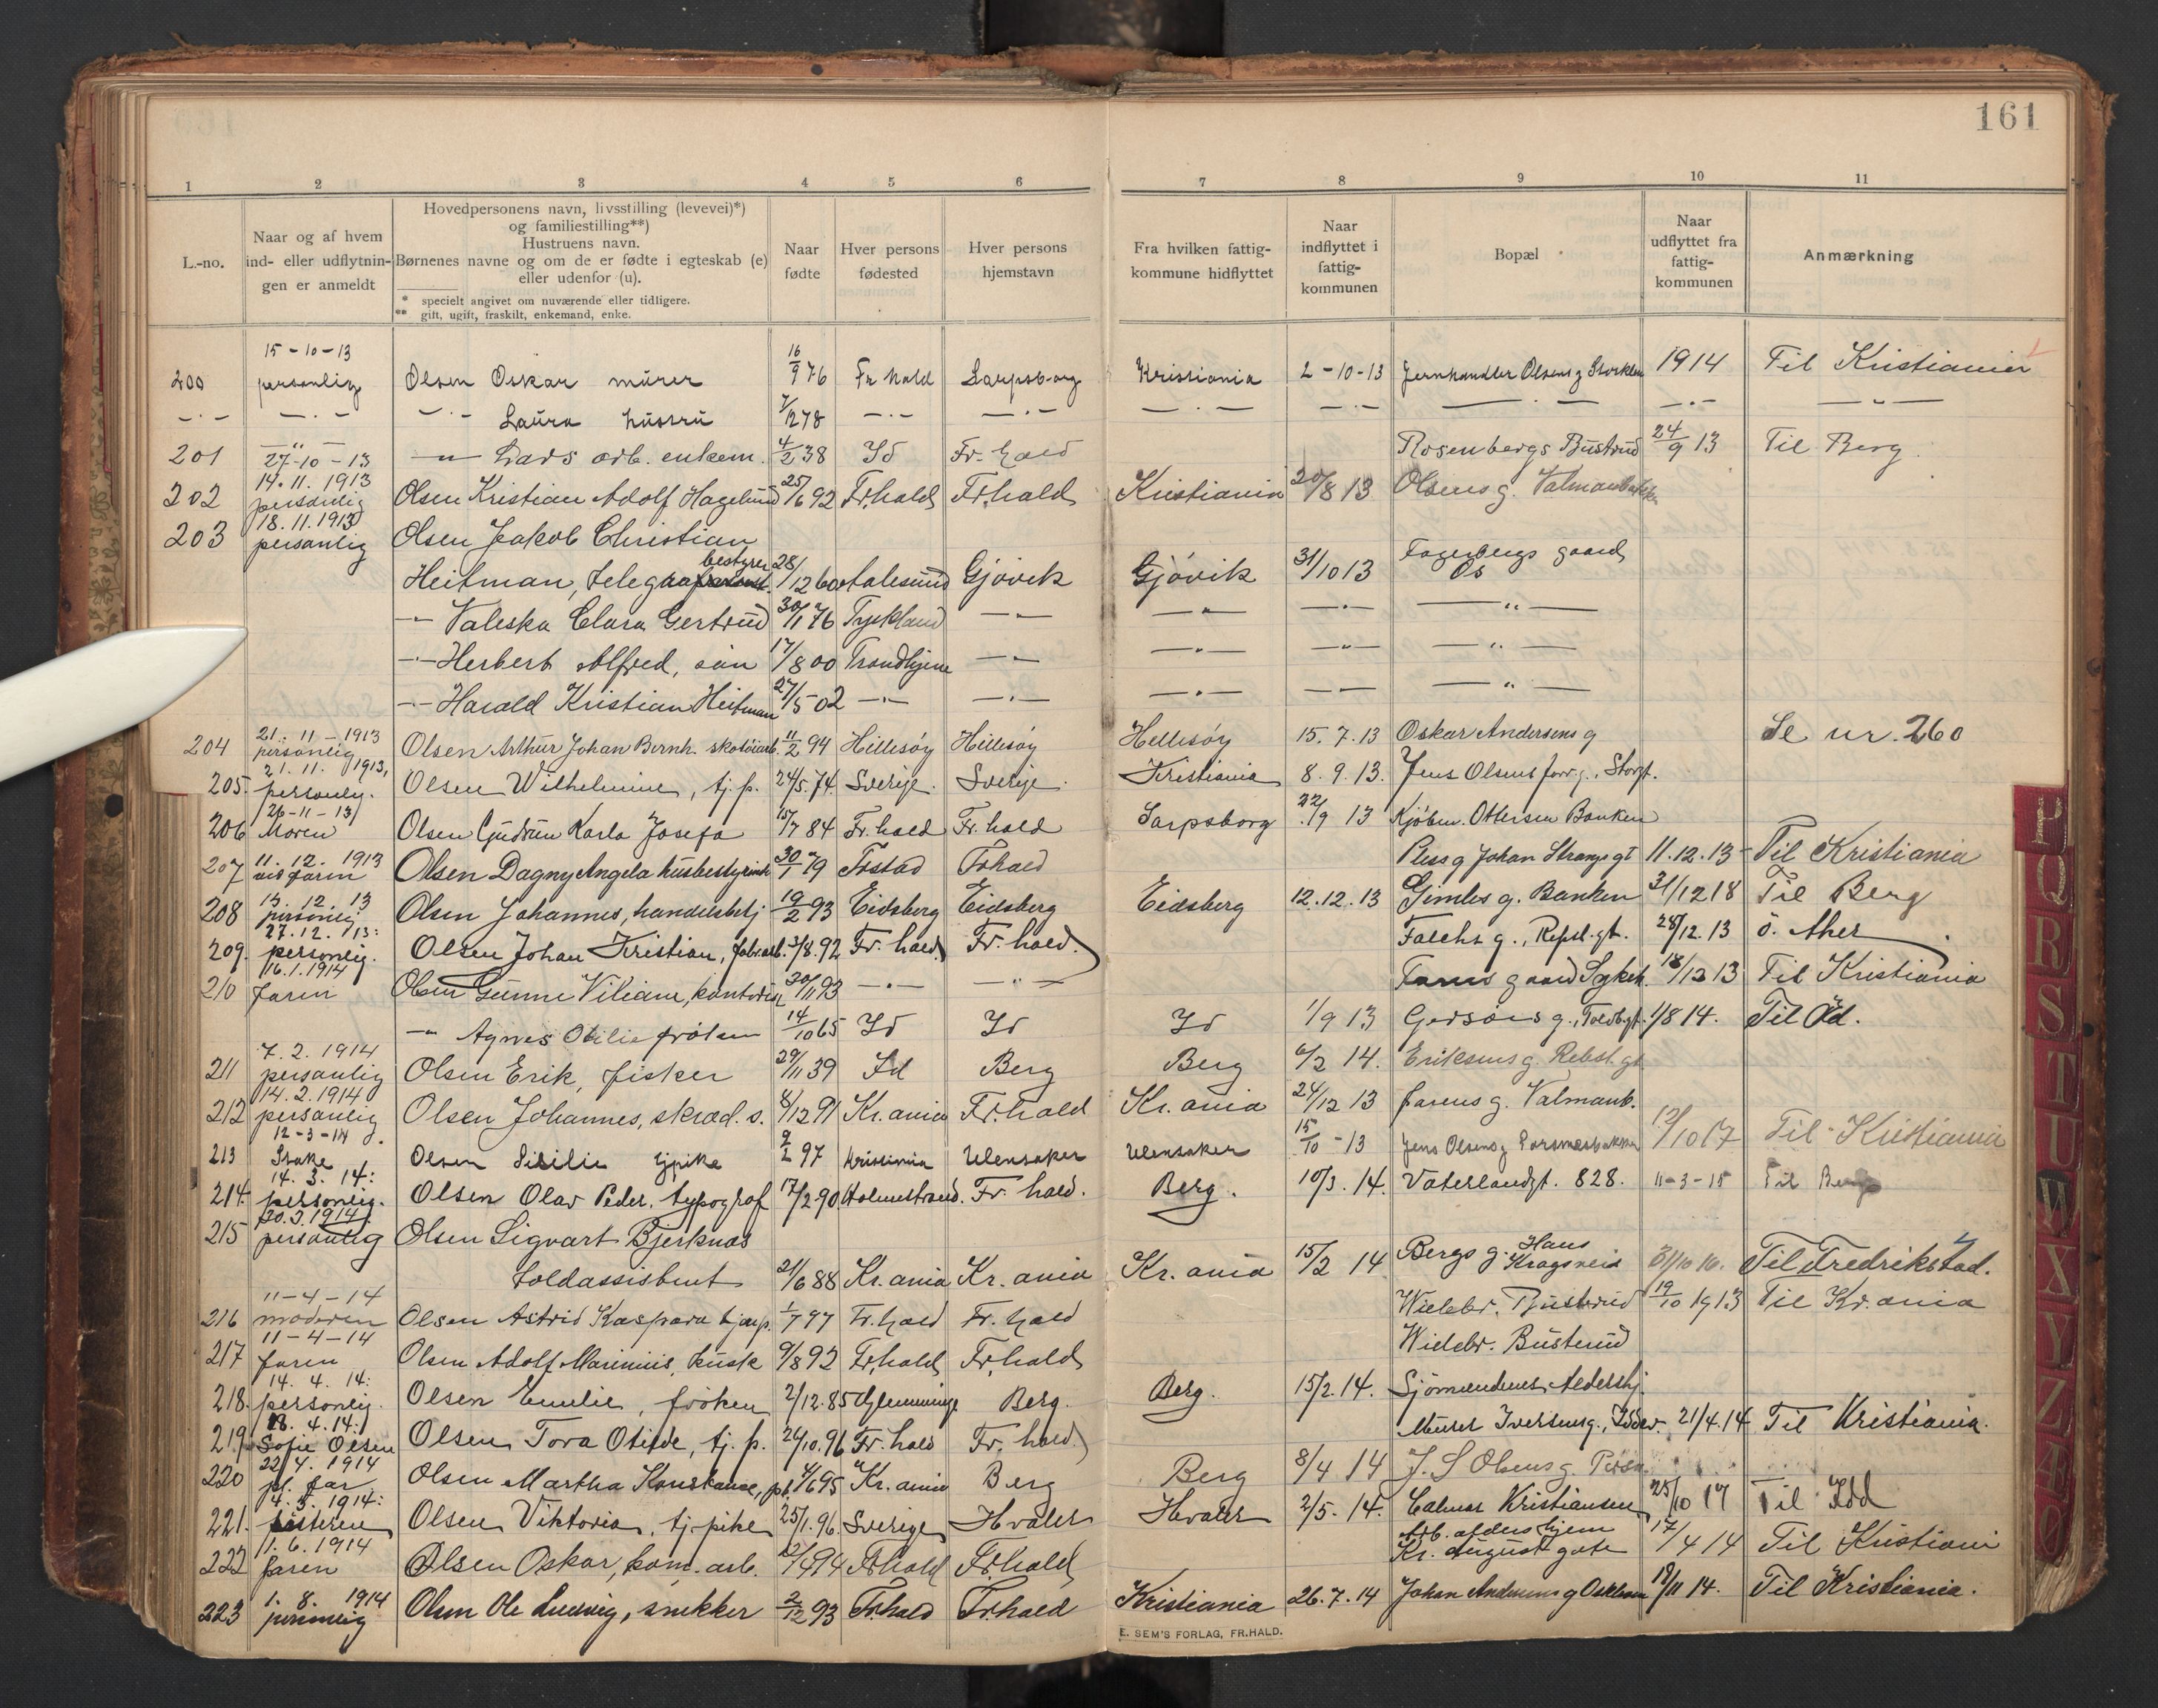 161
1 2 3 4 5 6 7 8 9 10 11
L.-no.
Naar og af hvem
ind- eller udflytnin-
gen er anmeldt
Hovedpersonens navn, livsstilling (levevei)*)
og familiestilling**)
Hustruens navn.
Børnenes navne og om de er fødte i egteskab (e)
eller udenfor (u).
* specielt angivet om nuværende eller tidligere.
** gift, ugift, fraskilt, enkemand, enke.
Naar
fødte
Hver persons
fødested
Hver persons
hjemstavn
Fra hvilken fattig-
kommune hidflyttet
Naar
indflyttet i
fattig-
kommunen
Bopæl
Naar
udflyttet fra
fattig-
kommunen
Anmærkning
15-10-13
200 personlig Olsen Oskar murer 16/9 76 Fr hald Sarpsborg Kristiania 2-10-13 Jernhandler Olsens g 1914 Til Kristiania
-·- -·- -·- Laura hustru 7/12 78 -·- -·- -·- -·- -·- -·- -"-
-"-
201 27-10-13 -"- Lars arb. enkem. 4/2 38 Id Fr. hald Rosenbergs Bustrud 24/9 13 Til Berg
14.11.1913
202 personlig Olsen Kristian Adolf Hagelund 25/6 92 Fr.hald Fr.hald Kristiania 20/8 13 Olsens g.
18.11.1913
203 personlig Olsen Jakob Christian
bestyrer
Heitman, 28/12 60 Aalesund Gjøvik Gjøvik 31/10 13 Fagerbergs gaard
Os
-"- Valeska Clara Gertrud 30/1 76 Tyskland -"- -"- -"- -"-
-"- Herbert Alfred, søn 17/8 00 Trondhjem -"- -"- -"- -"-
-"- Harald Kristian Heitman 27/5-02 -"- -"- -"- -"- -"-
21.11-1913
204 personlig Olsen Arthur Johan Bernh. skotøiarb. 11/2 94 Hillesøy Hillesøy Hellesøy 15.7.13 Oskar Andersens g Se nr. 260
21.11. 1913,
205. personlig. Olsen Wilhelmine, tj. p. 24/5.74. Sverige. Sverige. Kristiania 8.9.13. Jens Olsens forr. g., Storgt.
26-11-13
206 Moren Olsen Gudrun Karla Josefa 15/7 84 Fr.hald Fr.hald Sarpsborg 22/9 13 Kjøbm. Ottersen Banken
11.12.1913
207 Olsen Dagny Angela husbestyrinde 30/1 79 Frstad Frhald Johan Stangs gt 11.12.13- Til Kristiania
13.12.13
208 personlig Olsen Johannes, handelsbetj 19/2 93 Eidsberg Eidsberg Eidsberg 12.12.13 Gimles g. Banken 31/12 18 Til Berg
27.12.13:
209. personlig. Olsen Johan Kristian, fabr.arb. 3/8.92 Fr.hald. Fr.hald. Falchs g., Repsl.gt. 28/12.13 ö. Aker
16.1.1914
210 faren Olsen Gunne Viliam, kontorist 20/11 93 -·- -"- 18/12 13 Til Kristiania
-"- Agnes Otilie frøken 14/10 65 Id Id Id 1/9 13 g., Toldbgt. 1/8 14. Til Id.
7.2.1914
211 personlig Olsen Erik, fisker 29/11 39 Id Berg Berg 6/2 14. Eriksens g. Rebsl.gt
14.2.1914
212 personlig Olsen Johannes, skræd. s. 8/12 91 Kr.ania Fr.hald Kr.ania 24/12 13 farens g.
12-3-14
213 Olsen Sisilie tjpike 9/2 97 Kristiania Ulensaker Ulensaker 15/10-13 Jens Olsens g 12/10 17 Til Kristiania
14.3.14:
214. personlig. Olsen Olav Peder, typograf 17/2.90. Holmestrand. Fr.hald. Berg. 10/3.14. Vaterlandgt. 828. 11-3-15 Til Berg
20.3.1914.
215 personlig Olsen Sigvart Bjerknæs
toldassistent 21/6 88 Kr.ania Kr.ania Kr.ania 15/2 14 Bergs g. Hans
Kragsvei 31/10 16. Til Fredrikstad.
11-4-14
216 moderen Olsen Astrid Kaspara tj.p. 1/7 97 Fr.hald Fr.hald Bustrud 19/10 1913 Til Kr.ania
11-4-14
217 faren Olsen Adolf Marinius, kusk 9/8 92 Fr.hald Fr.hald Bustrud
14.4.14:
218. personlig. Olsen Emilie, frøken 2/12.85 Glemminge Berg. Berg. 15/2.14. Sjømændenes Aldershj.
18.4.14.
219. Sofie Olsen Olsen Tora Otilde, tj. p. 24/10.96 Fr.hald Fr.hald. Murer Iversens g., 21/4.14 Til Kristiania.
22/4.1914
220 pl. far Olsen Martha Konstanse, 4/6 95 Kr.ania Berg Berg 8/4 14 J. S Olsens g.
4.5.1914:
221. søsteren Olsen Viktoria, tj.pike 25/1.96. Sverige Hvaler Hvaler 2/5.14. Kristiansen 25/10 17 Til Idd
11.6.1914 Arb. aldershjem
222 faren Olsen Oskar, kom. arb. 94 Fr.hald Fr.hald Kr. August gate 17/4 14 Til Kristiania
1.8.1914
223 personlig Olsen Ole Ludvig, snekker 2/12 93 Fr.hald Fr.hald Kristiania 26.7.14 Johan Andersens g 19/11 14. Til Kristiania.
E. SEM'S FORLAG, FR.HALD.
P
Q
R
S
T
U
W
X
Y
Z
Æ
Ø